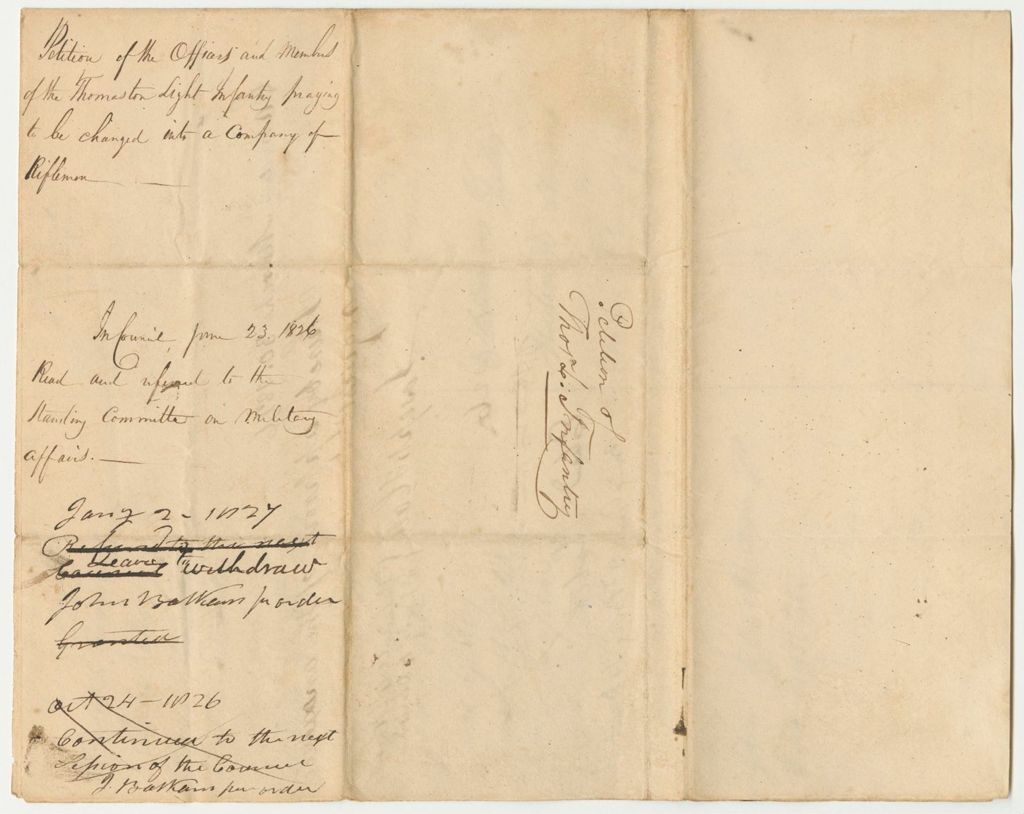 Petition of the Officers and Members
of the Thomaston Light Infantry praying
to be changed into a Company of
Riflemen
In Council, June 23. 1826
Read and referred to the
Standing Committee on Military
affairs.
Jany 2 - 1827
Referred to the next
Council Leave to withdraw
John Balkam per order
Granted
Oct 24 - 1826
Continued to the next
Session of the Council
J. Balkam per order
Petition of
Thos. Lt. Infantry